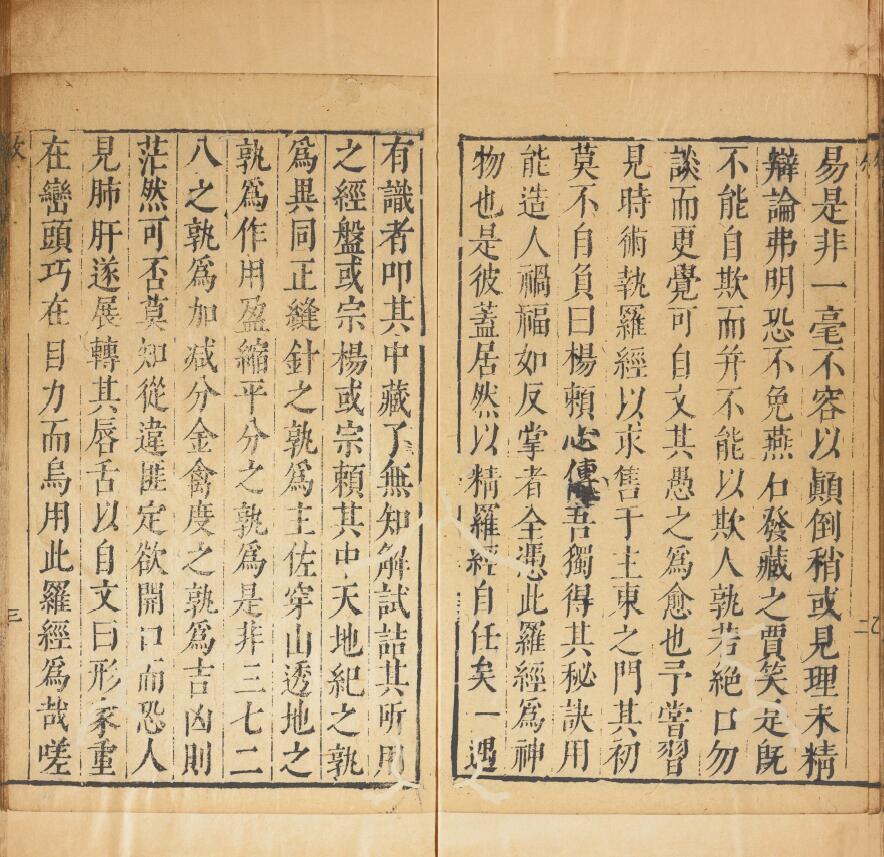 易是非一毫不容以顚倒稍或見理未精
辯論弗明恐不免燕石發藏之賈笑是旣
不能自欺而并不能以欺人孰若絶口勿
談而更覺可自文其愚之爲愈也予嘗習
見時術執羅經以求售于主東之門其初
莫不自負曰楊賴心傳吾獨得其秘訣用
能造人禍福如反掌者全憑此羅經爲神
物也是彼蓋居然以精羅經自任矣一遇
二
有識者叩其中藏了無知解試詰其所用
之經盤或宗楊或宗賴其中天地紀之孰
爲異同正縫針之孰爲主佐穿山透地之
孰爲作用盈縮平分之孰爲是非三七二
八之孰爲加减分金禽度之孰爲吉凶則
茫然可否莫知從違匪定欲開口而恐人
見肺肝遂展轉其唇舌以自文曰形家重
在巒頭巧在目力而烏用此羅經爲哉嗟
三